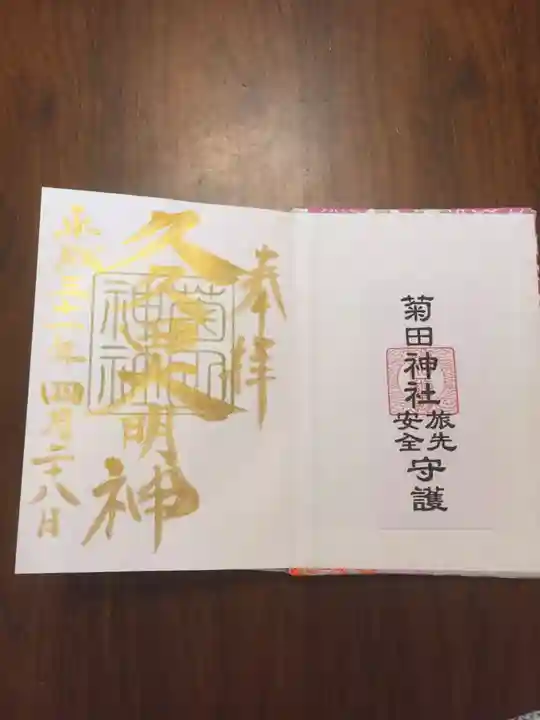 菊田神社
旅先
安全
守護
奉拝
久久田大明神
平成三十一年四月二十八日
菊田
神社